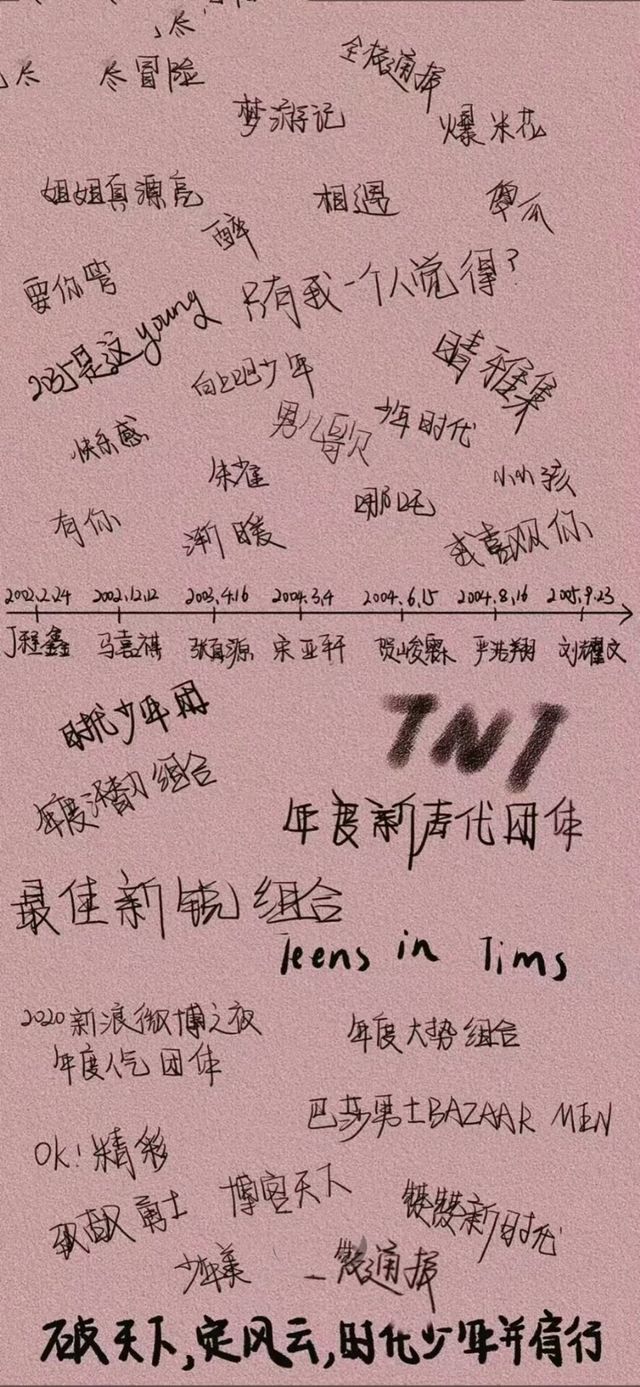 尽
尽 尽冒险
全校通报
梦游记 爆米花
姐姐真源亮 相遇
醉
要你管 只有我一个人觉得?
是这young
向上吧少年 晴雅集
快乐感 男儿歌 少年时代
朱雀 小小孩
有你 渐暖 哪吒 我喜欢你
2002.2.24 2002.12.12 2003.4.16 2004.3.4 2004.6.15 2004.8.16 2005.9.23
丁程鑫 马嘉祺 张真源 宋亚轩 贺峻霖 严浩翔 刘耀文
时代少年团 TNT
年度潜力组合
年度新声代团体
最佳新锐组合
Teens in Tims
2020新浪微博之夜
年度人气团体
年度大势组合
巴莎男士BAZAAR MEN
OK!精彩
飒飒勇士 博客天下
少年美
破天下,定风云,时代少年并肩行